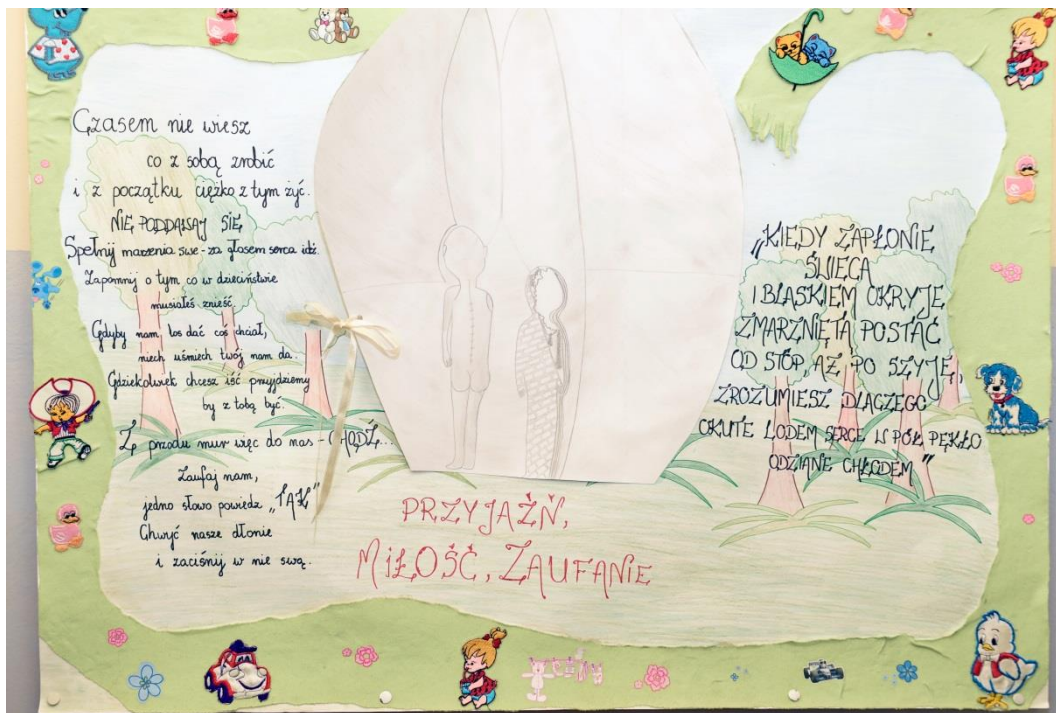 Czasem nie wiesz
co z sobą zrobić
i z początku ciężko z tym żyć.
NIE PODDAWAJ SIĘ
Spełnij marzenia swe - za głosem serca idź.
Zapomnij o tym co w dzieciństwie
musiałeś znieść.
Gdyby nam los dać coś chciał,
niech uśmiech twój nam da.
Gdziekolwiek chcesz iść przyjdziemy
by z tobą być.
Z przodu mur więc do nas - CHODŹ...
Zaufaj nam,
jedno słowo powiedz „TAK"
Chwyć nasze dłonie
i zaciśnij w nie swą.
„KIEDY ZAPŁONIE
ŚWIECA
I BLASKIEM OKRYJE
ZMARZNIĘTĄ POSTAĆ
OD STÓP, AŻ PO SZYJĘ,
ZROZUMIESZ DLACZEGO
OKUTE LODEM SERCE W PÓŁ PĘKŁO
ODZIANE CHŁODEM"
PRZYJAŹŃ,
MIŁOŚĆ, ZAUFANIE